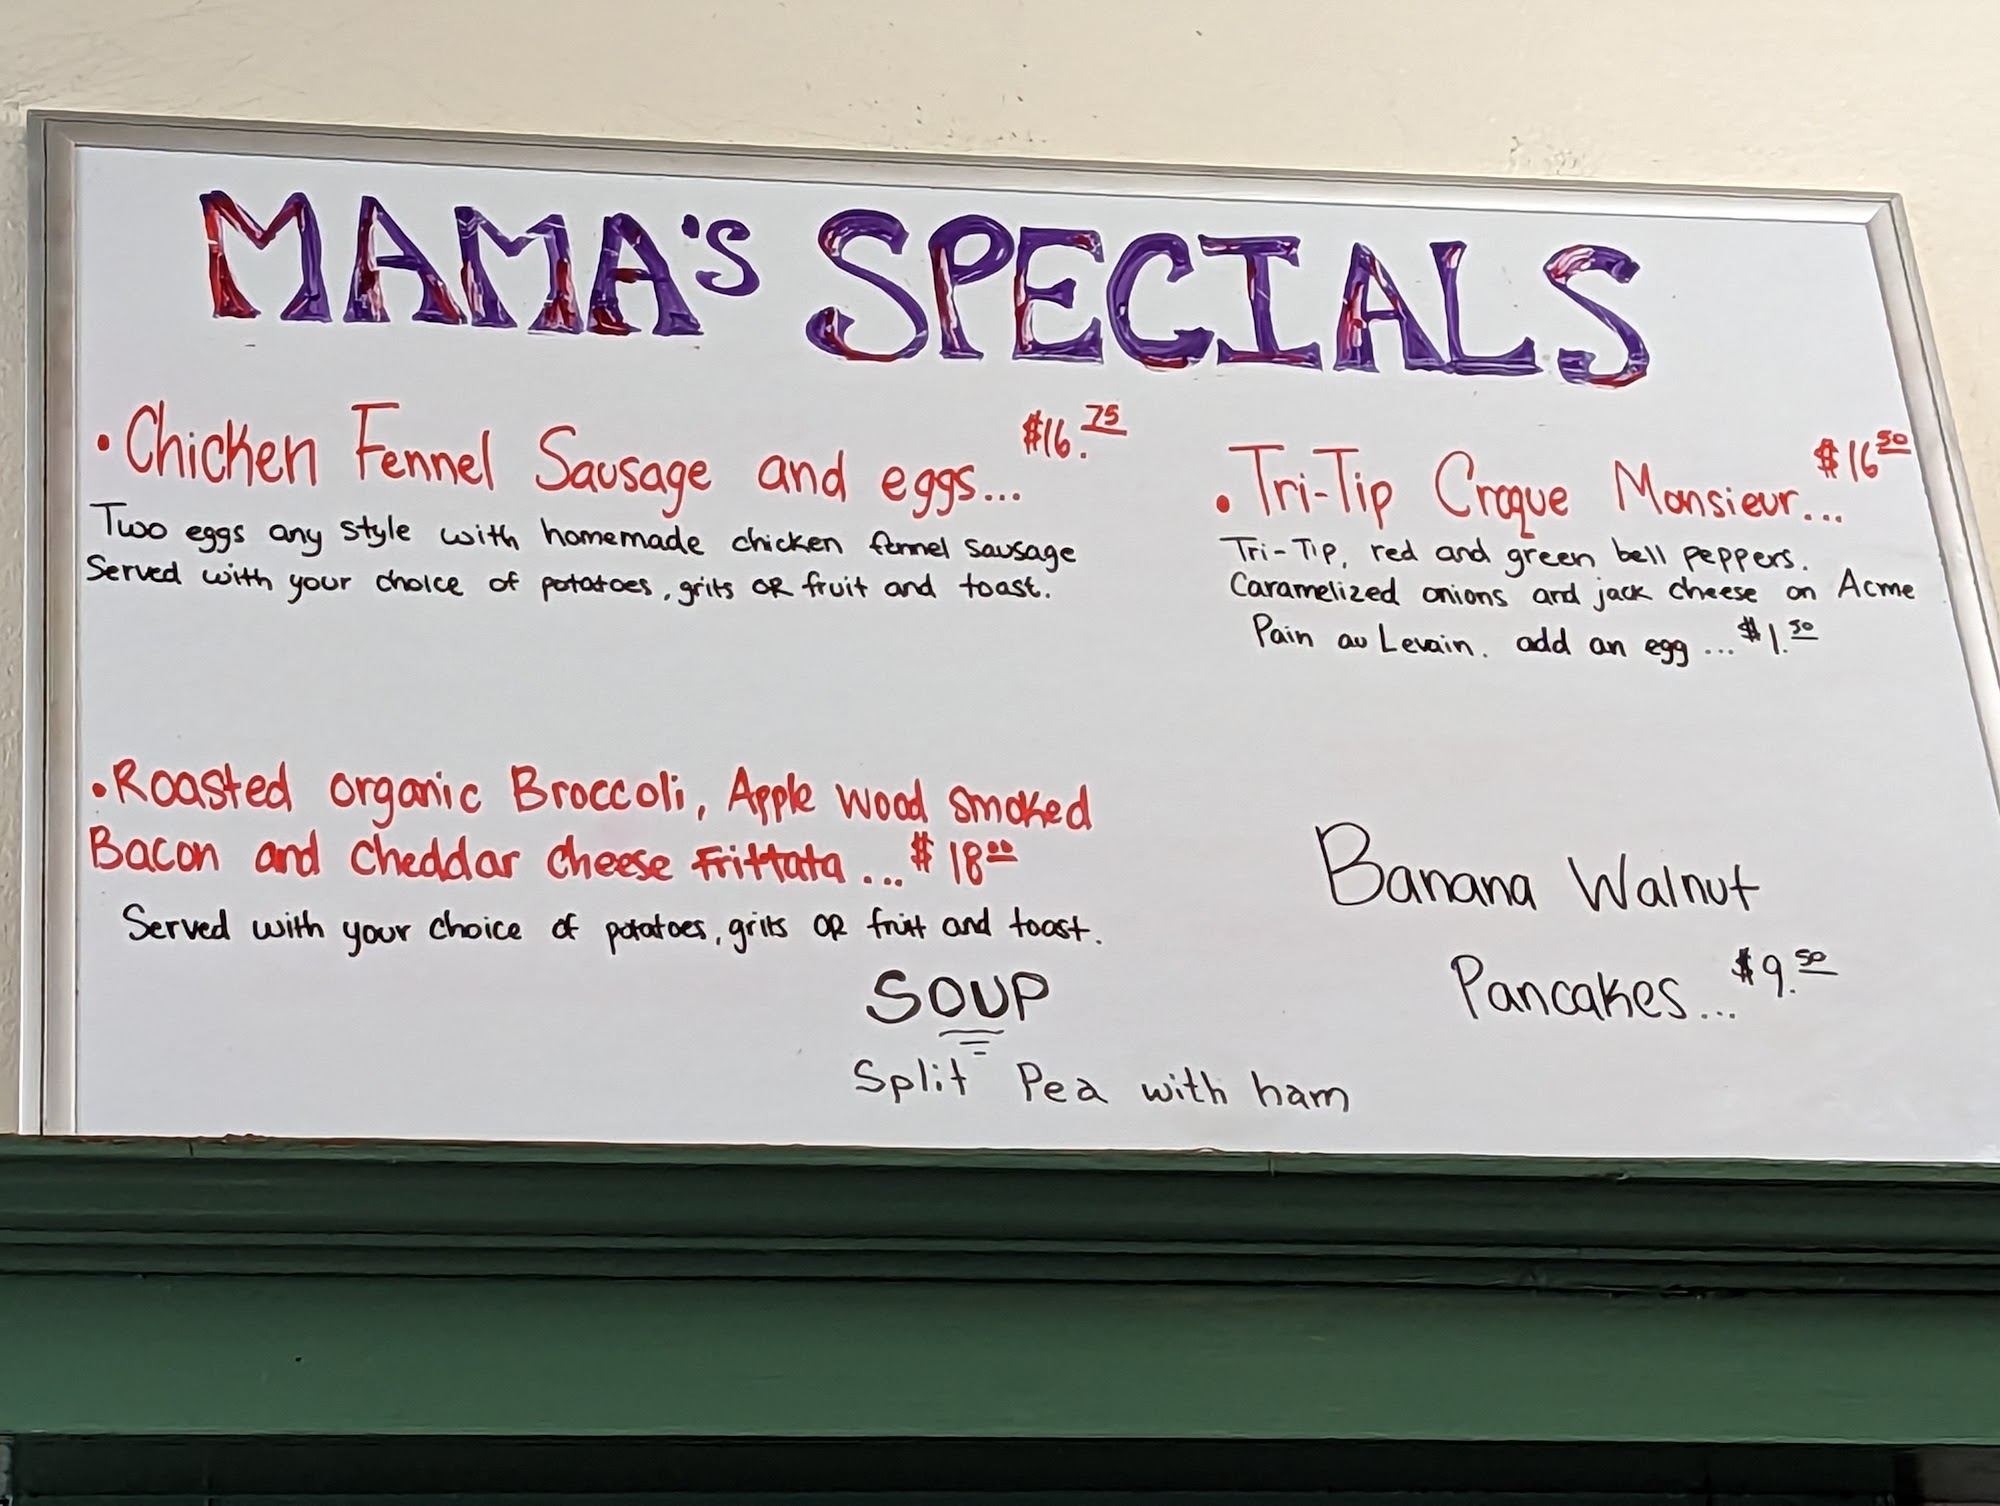 MAMA'S SPECIALS
• Chicken Fennel Sausage and eggs... $16.75
Two eggs any style with homemade chicken fennel sausage
Served with your choice of potatoes, grits OR fruit and toast.
• Tri-Tip Croque Monsieur... $16 50
Tri-Tip, red and green bell peppers.
Caramelized onions and jack cheese on Acme
Pain au Levain. add an egg ... $1.50
• Roasted organic Broccoli, Apple wood smoked
Bacon and cheddar cheese Frittata ... $18 00
Served with your choice of potatoes, grits OR fruit and toast.
Banana Walnut
Pancakes... $9.50
SOUP
Split Pea with ham